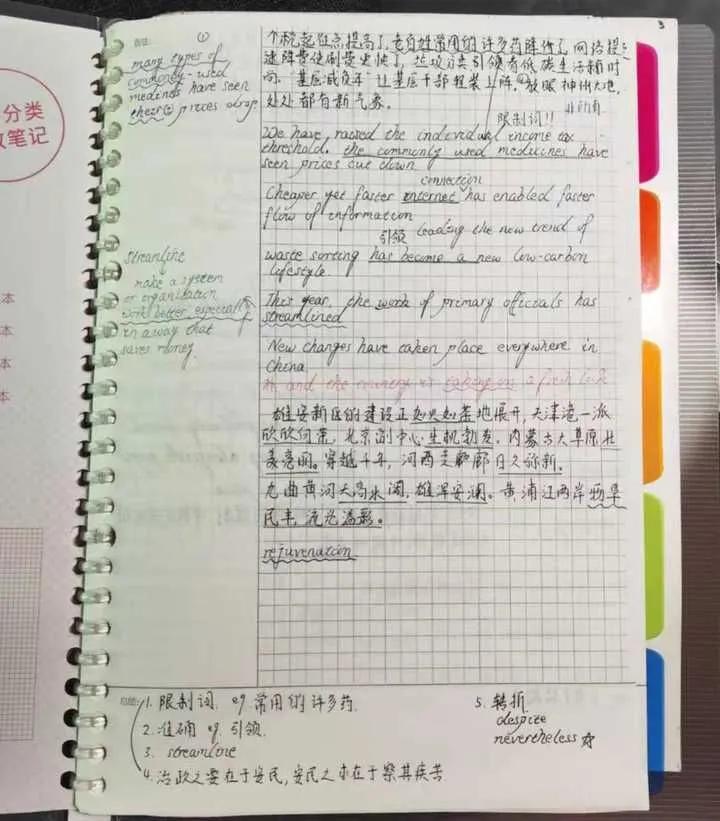 3
分类
笔记
本
本
本
本
①
many types of
commonly-used
medicines have seen
their prices drop
streamline
make a system
or organization
work better especially
in a way that
saves money.
个税起征点提高了,老百姓常用的许多药降价了,网络提
速降费使刷屏更快了,垃圾分类引领着低碳生活新时
尚,“基层减负年”让基层干部轻装上阵。放眼神州大地,
处处都有新气象。
非所有
限制词!!
We have raised the individual income tax
threshold. the commonly used medicines have
seen prices cut down
connection
Cheaper yet faster internet has enabled faster
flow of information
引领 leading the new trend of
waste sorting has become a new low-carbon
lifestyle
This year, the work of primary officials has
streamlined
New changes have taken place everywhere in
China
and the country is taking on a fresh look
雄安新区的建设正如火如荼地展开,天津港一派
欣欣向荣,北京副中心生机勃发,内蒙古大草原壮
美亮丽。穿越千年,河西走廊日久弥新。
九曲黄河天高水阔,雄浑安澜。黄浦江两岸物阜
民丰,流光溢彩。
rejuvenation
1. 限制词. eg 常用的许多药.
2. 准确 eg. 引领.
3. streamline
4. 治政之要在于安民,安民之本在于察其疾苦
5. 转折
despite
nevertheless